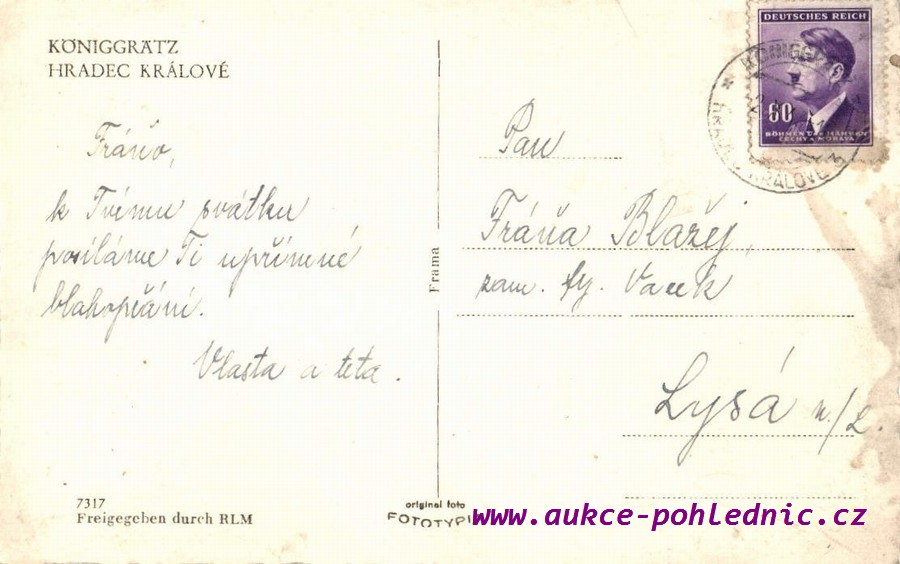 KÖNIGGRÄTZ
HRADEC KRÁLOVÉ
Fráňo,
k Tvému svátku
posíláme Ti upřímné
blahopřání.
Vlasta a teta.
7317
Freigegeben durch RLM
Frama
original foto
FOTOTYPI
DEUTSCHES REICH
60
BÖHMEN UND MÄHREN
ČECHY A MORAVA
KÖNIGG
HRADEC KRÁLOVÉ
Pan
Fráňa Blažej,
zam. fy. Vacek
Lysá n./L.
www.aukce-pohlednic.cz